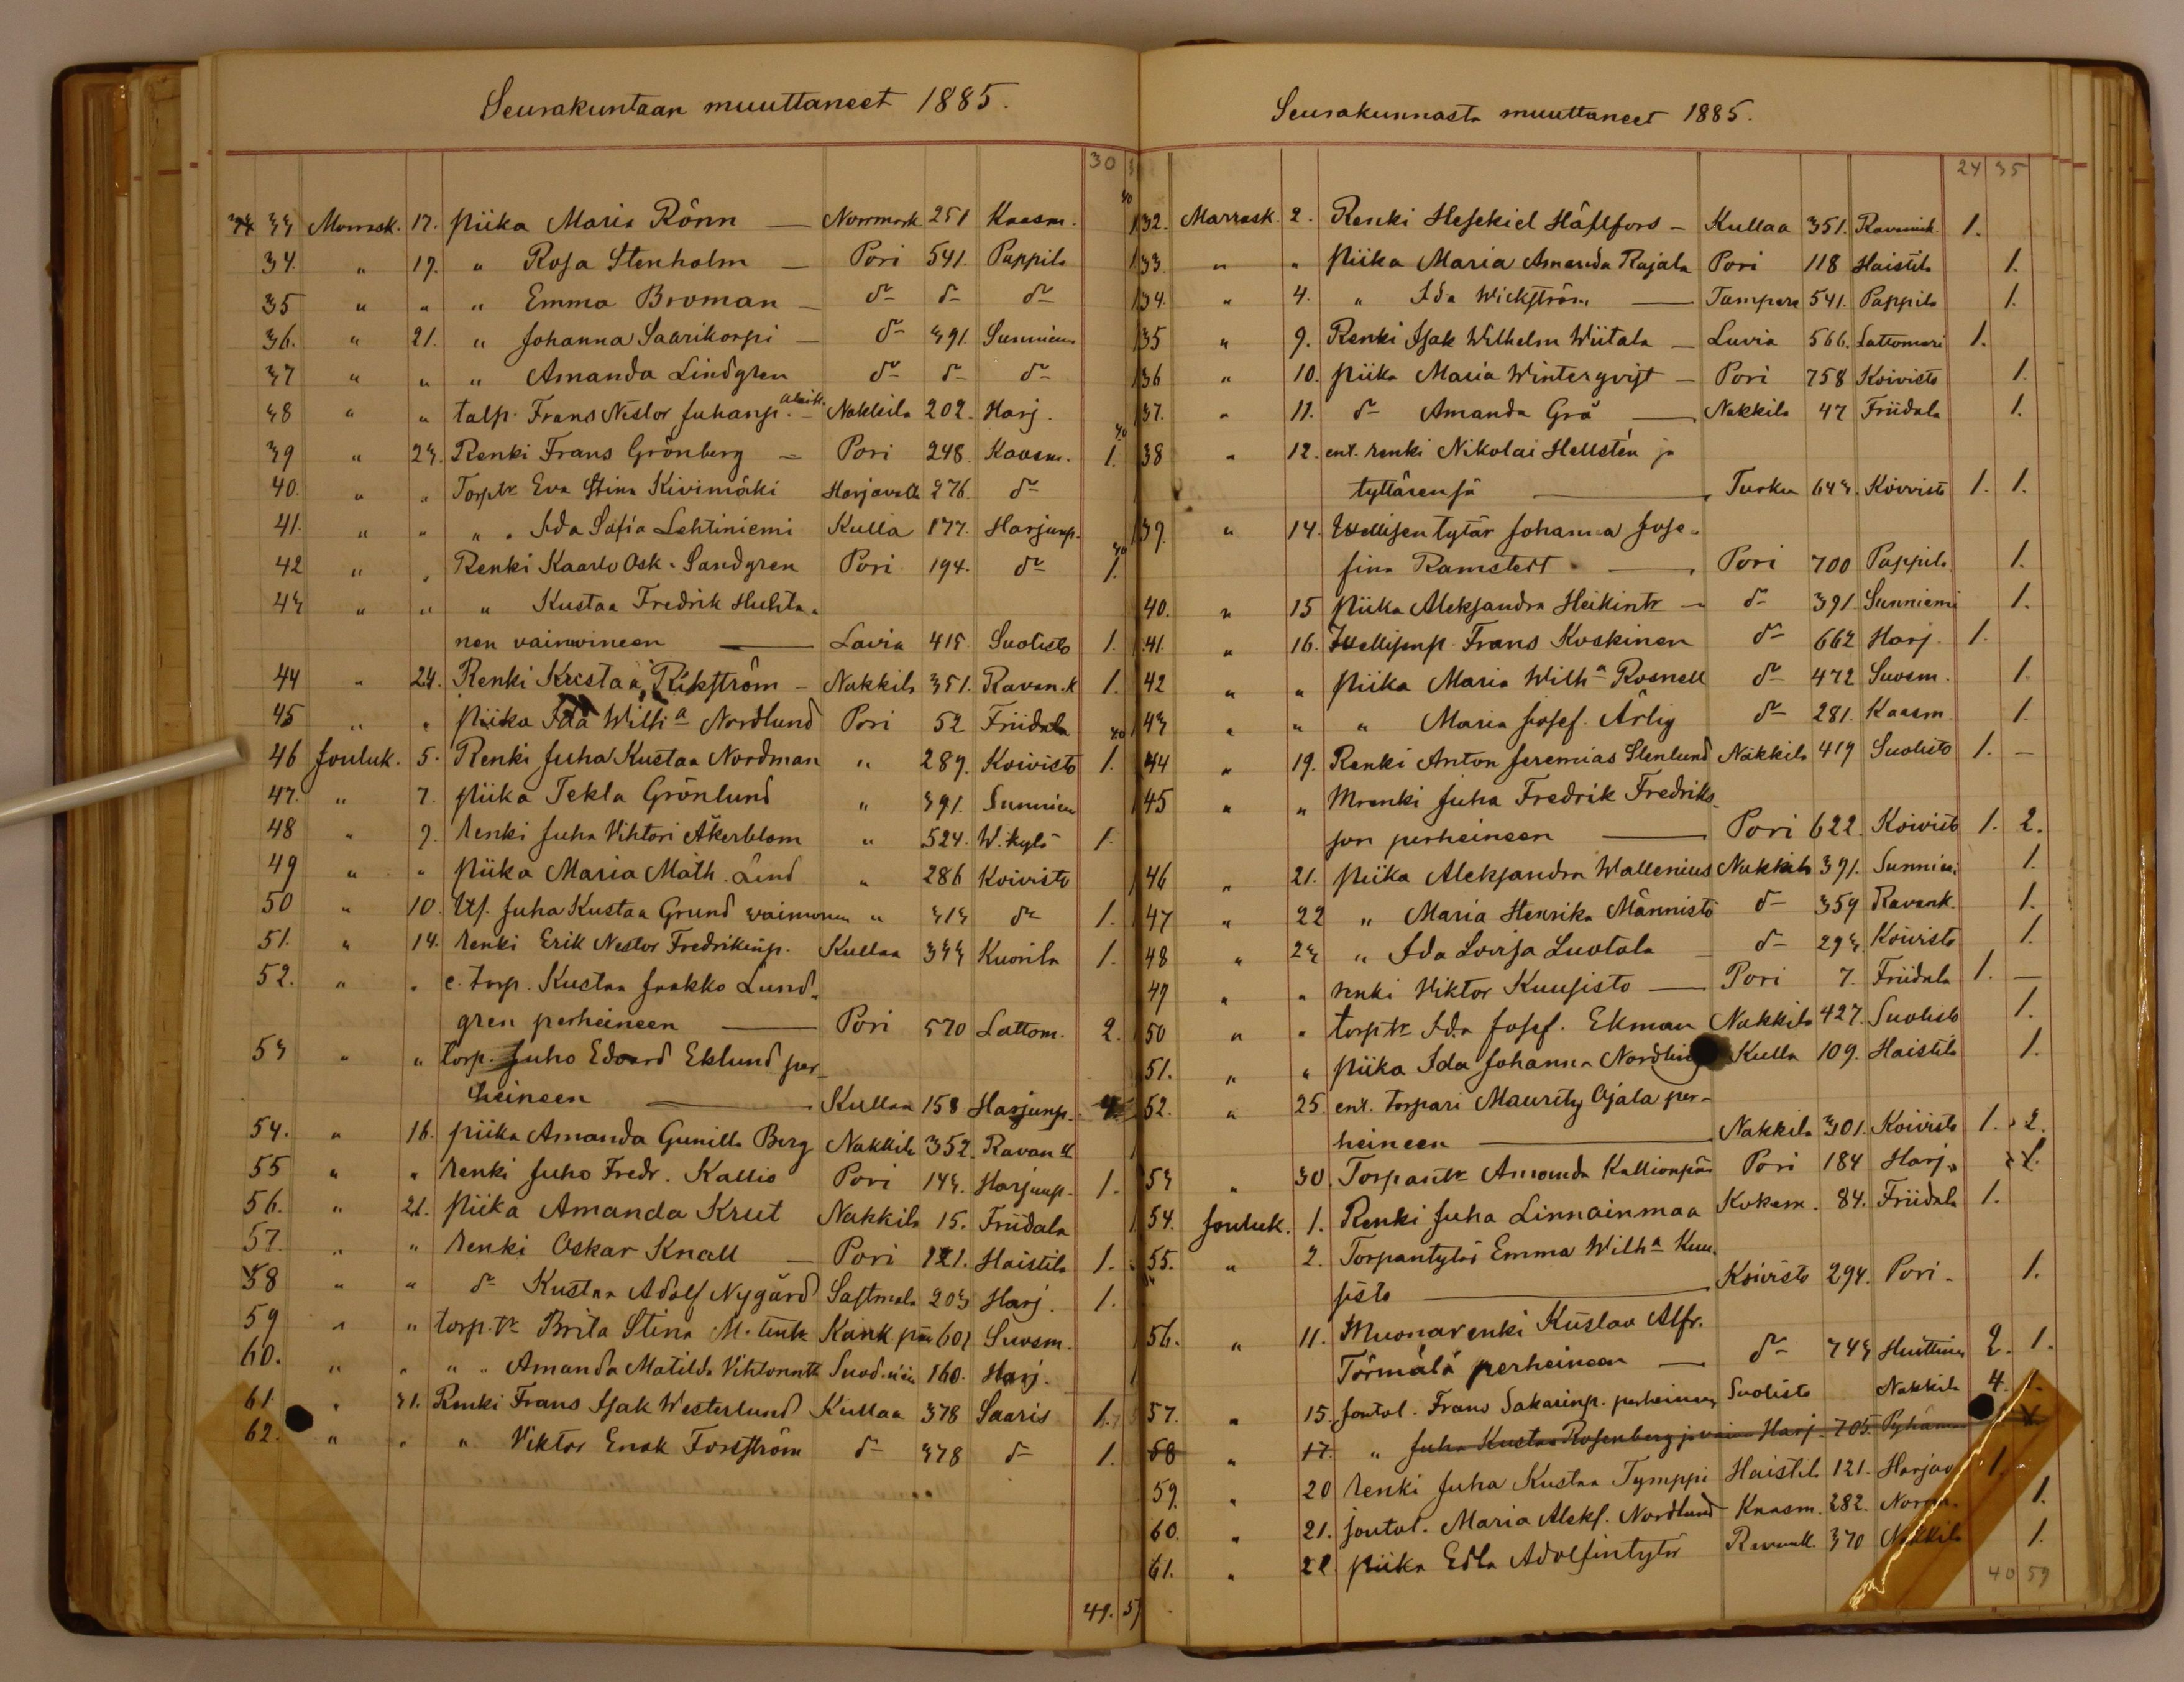 Seurakuntaan muuttaneet 1885.
30
33 Marrask. 17. Piika Maria Rönn — Norrmark 251 Kaasm.
34. " 19. " Rosa Stenholm — Pori 541. Pappila
35 " " " Emma Broman — d:o d:o d:o
36. " 21. " Johanna Saarikorpi — d:o 391. Sunniem
37 " " " Amanda Lindgren d:o d:o d:o
38 " " talp. Frans Nestor Juhanp. — Nakkila 202. Harj.
39 " 23. Renki Frans Grönberg — Pori 248. Kaasm. 1.
40. " " Torp.tr Eva Stina Kivimäki Harjavalta 276. d:o
41. " " " " Ida Sofia Lehtiniemi Kulla 177. Harjunp.
42 " " Renki Kaarlo Osk. Sandgren Pori 194. d:o 1.
43 " " " Kustaa Fredrik Huhta-
nen vaimoineen — Lavia 415. Suolisto 1.
44 " 24. Renki Kustaa Rikström — Nakkila 351. Ravan.k 1.
45 " " Piika Ida Wilh:a Nordlund Pori 52 Friidala
46 Jouluk. 5. Renki Juha Kustaa Nordman " 289. Koivisto 1.
47. " 7. Piika Tekla Grönlund " 391. Sunniem
48 " 9. Renki Juha Vihtori Åkerblom " 524. W.kylä 1.
49 " " Piika Maria Math. Lind " 286 Koivisto
50 " 10. Its. Juha Kustaa Grund vaimonen " 313 d:o 1.
51. " 14. Renki Erik Nestor Fredrikinp. Kullaa 333 Kuorila 1.
52. " " e. torp. Kustaa Jaakko Lund-
gren perheineen — Pori 570 Lattom. 2.
53 " " torp. Juho Edvard Eklund per-
heineen — Kullaa 158 Harjunp. 4
54. " 16. Piika Amanda Gunilla Berg Nakkila 352. Ravan k
55 " " Renki Juho Fredr. Kallio Pori 143. Harjunp. 1.
56. " 21. Piika Amanda Krut Nakkila 15. Friidala
57. " " Renki Oskar Knall — Pori 121. Haistila 1.
58 " " d:o Kustaa Adolf Nygård Sastmala 203 Harj. 1.
59 " " torp.tr Brita Stina M. Kank.pää 601 Suosm.
60. " " " " Amanda Matilda 160. Harj.
61. " 31. Renki Frans Isak Westerlund Kullaa 378 Saaris 1.
62. " " " Viktor Enok Forsström d:o 378 d:o 1.
49. 57
Seurakunnasta muuttaneet 1885.
24 35
132. Marrask. 2. Renki Hesekiel Hällfors — Kullaa 351. 1.
133. " " Piika Maria Amanda Rajala Pori 118 Haistila 1.
134. " 4. " Ida Wickström — Tampere 541. Pappila 1.
135 " 9. Renki Isak Wilhelm Wiitala — Luvia 566. Lattomeri 1.
136 " 10. Piika Maria Winterqvist — Pori 758 Koivisto 1.
137. " 11. d:o Amanda Grå — Nakkila 47 Friidala 1.
138 " 12. ent. renki Nikolai Hellstén ja
tyttärensä — Turku 643. Koivisto 1. 1.
139. " 14. Itsellisen tytär Johanna Jose-
fina Ramstedt — Pori 700 Pappila 1.
40. " 15 Piika Aleksandra Heikintr — d:o 391 Sunniemi 1.
41. " 16. Itsellisenp. Frans Koskinen d:o 662 Harj. 1.
42 " " Piika Maria Wilh:a Rosnell d:o 472 Suosm. 1.
43 " " " Maria Josef. Ärlig d:o 281. Kaasm. 1.
44 " 19. Renki Anton Jeremias Stenlund Nakkila 419 Suolisto 1. —
45 " " Mrenki Juha Fredrik Fredriks-
son perheineen — Pori 622. Koivisto 1. 2.
46 " 21. Piika Aleksandra Wallenius Nakkila 391. Sunniem. 1.
47 " 22 " Maria Henrika Männistö d:o 359 Ravank. 1.
48 " 23 " Ida Lovisa Luotola d:o 293. Koivisto 1.
49 " " Renki Viktor Kuusisto — Pori 7. Friidala 1. —
50 " " torp.tr Ida Josef. Ekman Nakkila 427. Suolisto 1.
51. " " Piika Ida Johanna Nordling Kulla 109. Haistila 1.
52. " 25. ent. torpari Maurits Ojala per-
heineen — Nakkila 301. Koivisto 1. 2.
53 " 30. Torpantr Amanda Kallionpää Pori 184 Harj. 1.
54. Jouluk. 1. Renki Juha Linnainmaa Kokem. 84. Friidala 1.
55. " 2. Torpantytär Emma Wilh:a Kuu-
sisto — Koivisto 294. Pori. 1.
56. " 11. Muonarenki Kustaa Alfr.
Törmälä perheineen — d:o 743 Huittinen 2. 1.
57. " 15. Joutol. Frans Sakarinp. perheineen Suolisto Nakkila 4. 1.
58 " 17. " Juha Kustaa Rosenberg ja vaimo Harj. 705. Pyhämaa
59. " 20 Renki Juha Kustaa Tymppi Haistila 121. Harjav 1.
60. " 21. joutol. Maria Aleks. Nordlund Kaasm. 282. Norrm. 1.
61. " 22 Piika Edla Adolfintytär Ravank. 370 Nakkila 1.
40 59